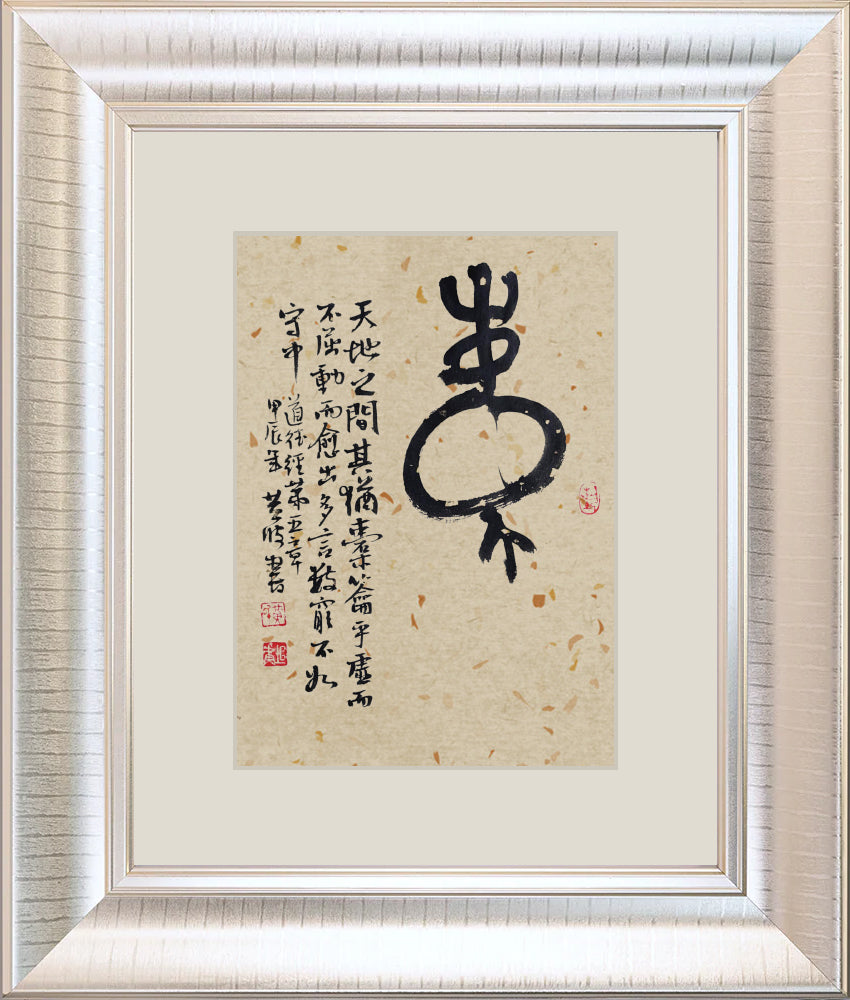 橐
天地之間其猶橐籥乎虛而
不屈動而愈出多言數窮不如
守中
道德經第五章
甲辰年 書